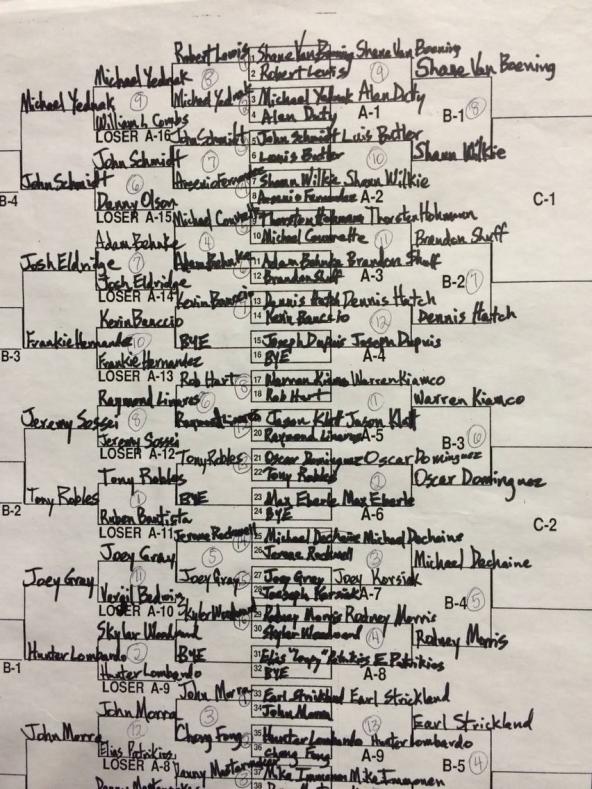 Robert Lewis 1 Shane Van Boening Shane Van Boening
2 Robert Lewis 9 Shane Van Boening
Michael Yednak 8 Michael Yednak 3 Michael Yednak Alan Duty
Michael Yednak 9 4 Alan Duty A-1 B-1 8
William L Combs
LOSER A-16 John Schmidt 5 John Schmidt Luis Butler
John Schmidt 7 6 Louis Butler 10 Shann Wilkie
John Schmidt 6 Arsenio Fernandez 7 Shann Wilkie Shann Wilkie
B-4 Danny Olson 8 Arsenio Fernandez A-2 C-1
LOSER A-15 Michael 9 Thorsten Hohmann Thorsten Hohmann
Adam Behnke 4 10 Michael 11 Brandon Shuff
Josh Eldridge 7 Adam Behnke 11 Adam Behnke Brandon Shuff
Josh Eldridge 12 Brandon Shuff A-3 B-2 7
LOSER A-14 Kevin 13 Dennis Hatch Dennis Hatch
Kevin 14 Kevin 12 Dennis Hatch
Frankie Hernandez 10 BYE 15 Joseph Dupuis Joseph Dupuis
B-3 Frankie Hernandez 16 BYE A-4
LOSER A-13 Rob Hart 17 Warren Kiamco Warren Kiamco
Raymond Linares 6 18 Rob Hart 1 Warren Kiamco
Jeremy Sossei 8 Raymond Linares Jason Klatt Jason Klatt
Jeremy Sossei 20 Raymond Linares A-5 B-3 6
LOSER A-12 Tony Robles 21 Oscar Dominguez Oscar Dominguez
Tony Robles 22 Tony Robles 2 Oscar Dominguez
Tony Robles 1 BYE 23 Max Eberle Max Eberle
B-2 Ruben Bautista 24 BYE A-6 C-2
LOSER A-11 Jerome Rockwell 25 Michael Dechaine Michael Dechaine
Joey Gray 5 26 Jerome Rockwell 3 Michael Dechaine
Joey Gray 11 Joey Gray 27 Joey Gray Joey Korsiak
28 Joseph Korsiak A-7 B-4 5
LOSER A-10 Skyler Woodward 29 Rodney Morris Rodney Morris
Skyler Woodward 30 Skyler Woodward 4 Rodney Morris
Hunter Lombardo 2 BYE 31 Elias Patrikios E Patrikios
B-1 Hunter Lombardo 32 BYE A-8
LOSER A-9 John Morra 33 Earl Strickland Earl Strickland
John Morra 3 34 John Morra 13 Earl Strickland
John Morra 12 Chong Fong 35 Hunter Lombardo Hunter Lombardo
Elias Patrikios 36 Chong Fong A-9 B-5 4
LOSER A-8 37 Mike Immonen Mike Immonen
38